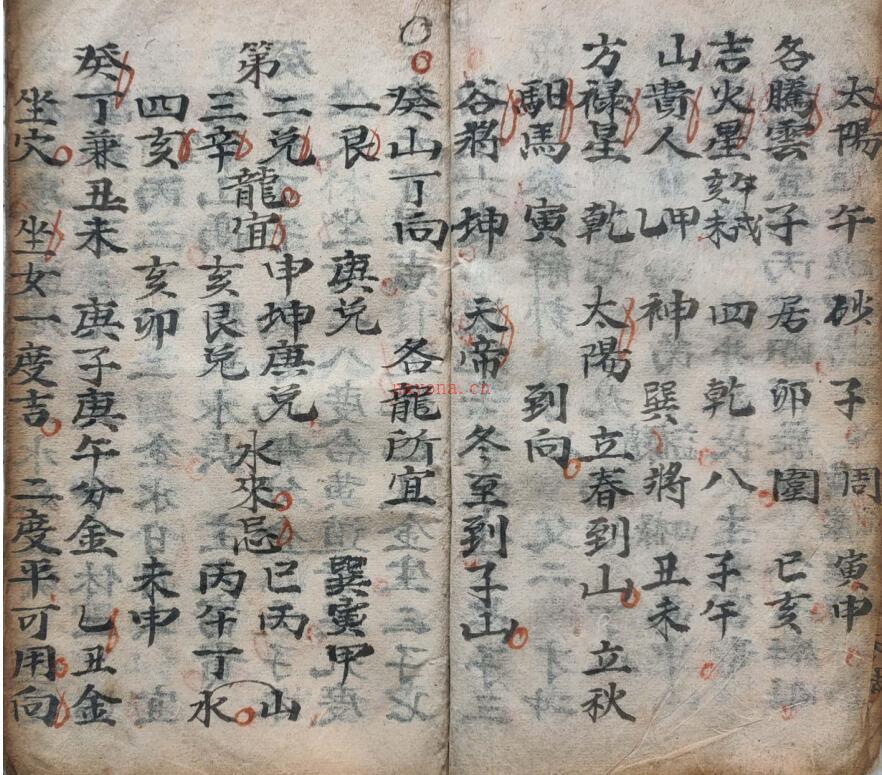 太陽 午 砂 子 周 寅申
各騰雲 子 居 卯 圍 巳亥
吉火星 午戌亥未 四 乾 八 子午
山貴人 甲乙 神 巽 將 丑未
方祿星 乾 太陽 立春到山 立秋
馹馬 寅 到向
谷將 坤 天帝 冬至到子山
癸山丁向 各龍所宜
一艮 庚兌 巽寅甲
第 二兌 龍宜 申坤庚兌 水來忌 巳丙 山
三辛 亥艮兌 丙午丁 水
四亥 亥卯 未申
癸丁兼丑未 庚子庚午分金 乙丑金
坐穴 坐女一度吉 二度平可用向